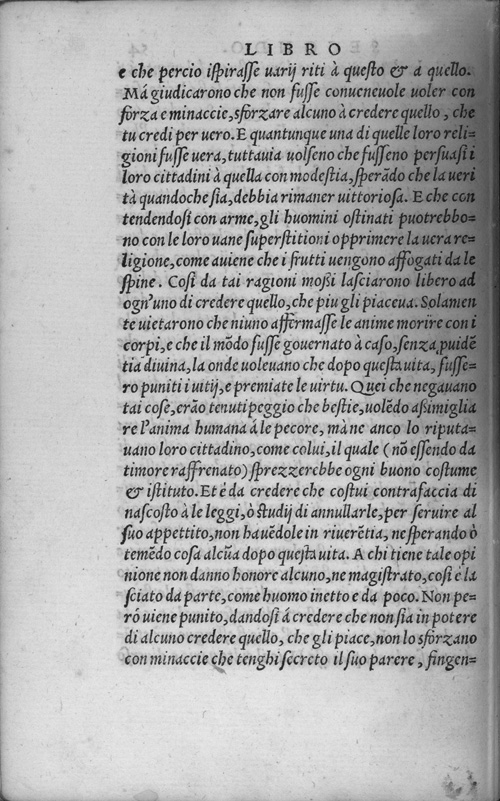 LIBRO
e che percio ispirasse uarij riti à questo & a quello.
Má giudicarono che non fusse conueneuole uoler con
forza e minaccie, sforzare alcuno à credere quello, che
tu credi per uero. E quantunque una di quelle loro reli-
gioni fusse uera, tuttauia uolseno che fusseno persuasi i
loro cittadini à quella con modestia, sperãdo che la ueri
tà quandoche sia, debbia rimaner uittoriosa. E che con
tendendosi con arme, gli huomini ostinati puotrebbo-
no con le loro uane superstitioni opprimere la uera re-
ligione, come auiene che i frutti uengono affogati da le
spine. Cosi da tai ragioni moßi lasciarono libero ad
ogn'uno di credere quello, che piu gli piaceua. Solamen
te uietarono che niuno affermasse le anime morire con i
corpi, e che il mõdo fusse gouernato à caso, senza puidẽ
tia diuina, la onde uoleuano che dopo questa uita, fusse-
ro puniti i uitij, e premiate le uirtu. Quei che negauano
tai cose, erão tenuti peggio che bestie, uolẽdo aßimiglia
re l'anima humana á le pecore, mà ne anco lo riputa-
uano loro cittadino, come colui, il quale (nõ essendo da
timore raffrenato) sprezzerebbe ogni buono costume
& istituto. Et é da credere che costui contrafaccia di
nascosto à le leggi, ò studij di annullarle, per seruire al
suo appettito, non hauẽdole in riuerẽtia, ne sperando ò
temẽdo cosa alcũa dopo questa uita. A chi tiene tale opi
nione non danno honore alcuno, ne magistrato, cosi è la
sciato da parte, come huomo inetto e da poco. Non pe-
ró uiene punito, dandosi á credere che non sia in potere
di alcuno credere quello, che gli piace, non lo sforzano
con minaccie che tenghi secreto il suo parere, fingen-